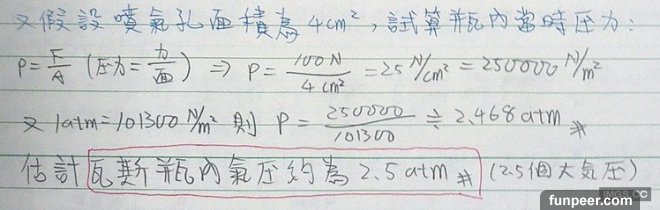 又假設噴氣孔面積為4cm²,試算瓶內當時压力:
P=F/A (压力=力/面) ⇒ P=100N/4cm²=25N/cm²=250000N/m²
又1atm=101300N/m²則 P=250000/101300≒2.468atm#
估計瓦斯瓶內氣压約為2.5atm# (2.5個大気压)
funpeer.com